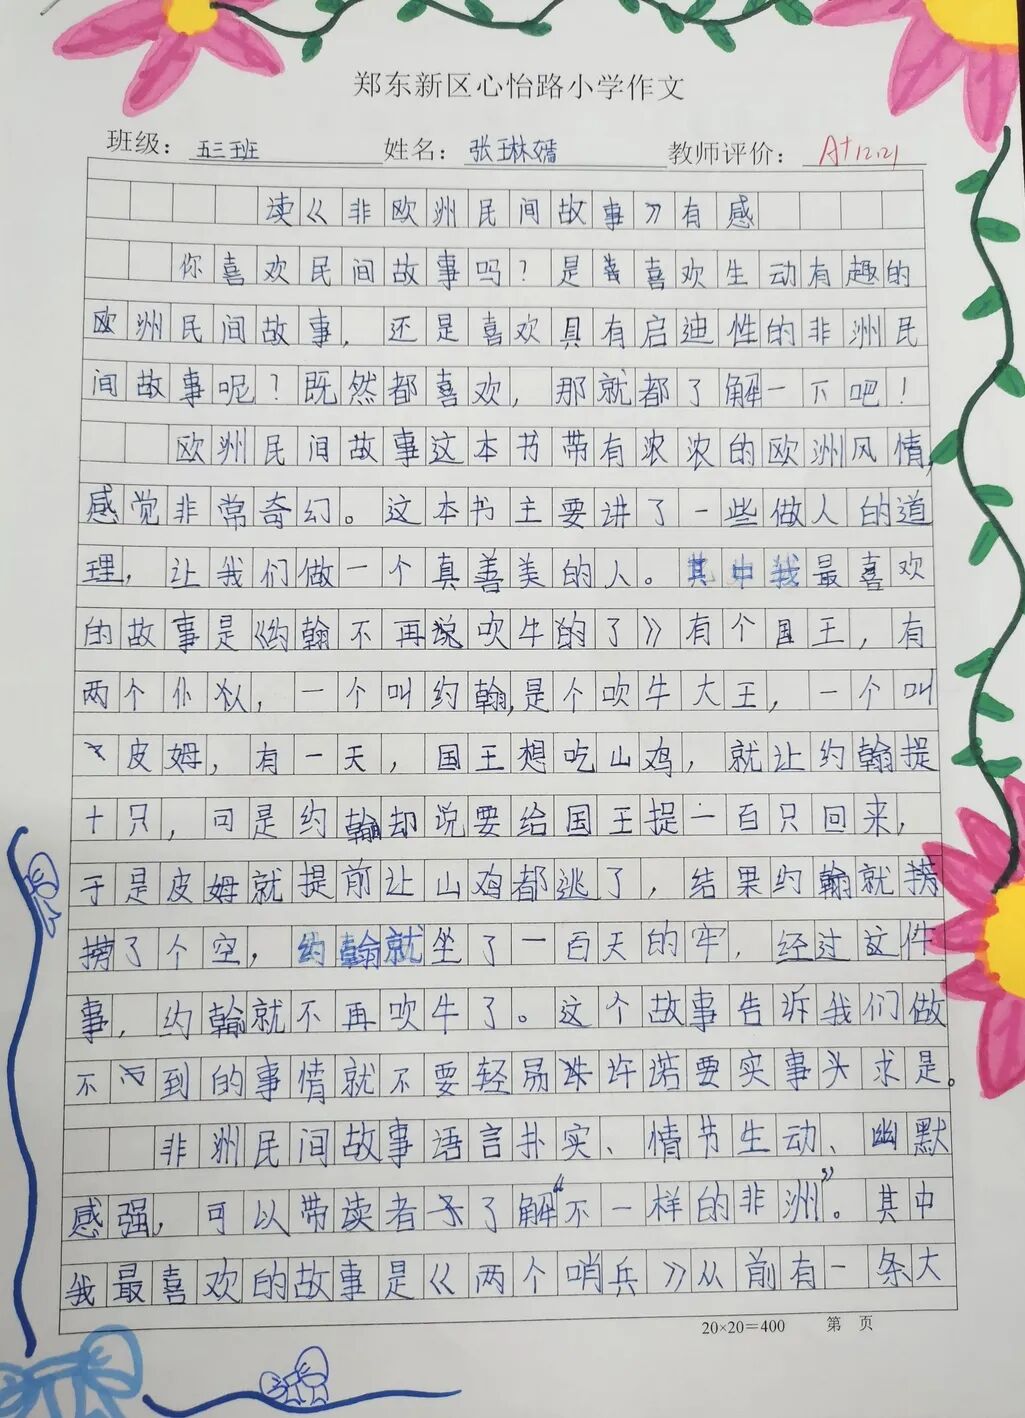 郑东新区心怡路小学作文
班级：五三班 姓名：张琳嫣 教师评价：A+ 12.21
读《非欧洲民间故事》有感
你喜欢民间故事吗？是喜欢生动有趣的
欧洲民间故事，还是喜欢具有启迪性的非洲民
间故事呢？既然都喜欢，那就都了解一下吧！
欧洲民间故事这本书带有浓浓的欧洲风情，
感觉非常奇幻。这本书主要讲了一些做人的道
理，让我们做一个真善美的人。其中我最喜欢
的故事是《约翰不再说吹牛的了》有个国王，有
两个仆从，一个叫约翰，是个吹牛大王，一个叫
皮姆，有一天，国王想吃山鸡，就让约翰提
十只，可是约翰却说要给国王提一百只回来，
于是皮姆就提前让山鸡都逃了，结果约翰就捞
捞了个空，约翰就坐了一百天的牢，经过这件
事，约翰就不再吹牛了。这个故事告诉我们做
不到的事情就不要轻易许诺要实事求是。
非洲民间故事语言朴实、情节生动、幽默
感强，可以带读者了解“不一样的非洲”。其中
我最喜欢的故事是《两个哨兵》从前有一条大
20×20=400 第 页